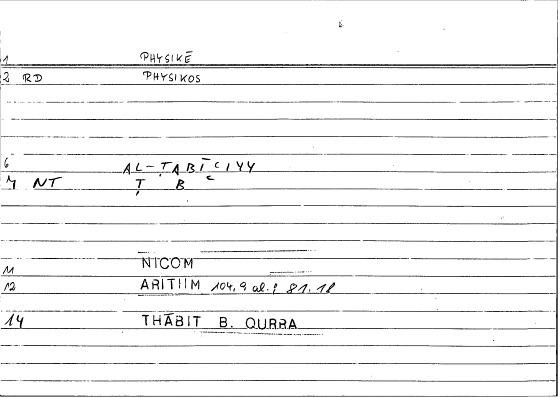 1 PHYSIKĒ
2 RD PHYSIKOS
6 AL-ṬABĪʿIYY
7 NT Ṭ B ʿ
11 NICOM
12 ARITIIM 104,9 al.; 81,18
14 THĀBIT B. QURRA